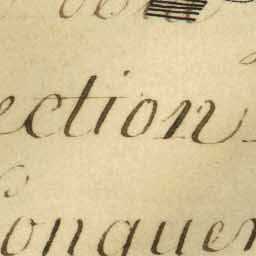 ection
onquer